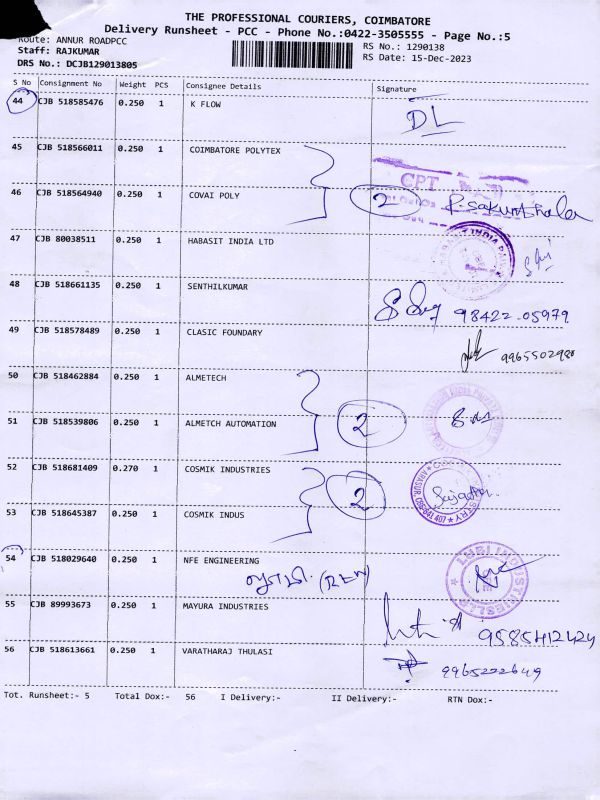 THE PROFESSIONAL COURIERS, COIMBATORE
Delivery Runsheet - PCC - Phone No.:0422-3505555 - Page No.:5
Route: ANNUR ROADPCC
Staff: RAJKUMAR
DRS No.: DCJB129013805
RS No.: 1290138
RS Date: 15-Dec-2023
S No Consignment No Weight PCS Consignee Details Signature
44 CJB 518585476 0.250 1 K FLOW DL
45 CJB 518566011 0.250 1 COIMBATORE POLYTEX
CPT
46 CJB 518564940 0.250 1 COVAI POLY 2 P. Sakunthala
47 CJB 80038511 0.250 1 HABASIT INDIA LTD
48 CJB 518661135 0.250 1 SENTHILKUMAR 98422-05979
49 CJB 518578489 0.250 1 CLASIC FOUNDARY
50 CJB 518462884 0.250 1 ALMETECH
51 CJB 518539806 0.250 1 ALMETCH AUTOMATION 2
52 CJB 518681409 0.270 1 COSMIK INDUSTRIES 2
53 CJB 518645387 0.250 1 COSMIK INDUS
54 CJB 518029640 0.250 1 NFE ENGINEERING
55 CJB 89993673 0.250 1 MAYURA INDUSTRIES 9585412424
56 CJB 518613661 0.250 1 VARATHARAJ THULASI 9965222649
Tot. Runsheet:- 5 Total Dox:- 56 I Delivery:- II Delivery:- RTN Dox:-